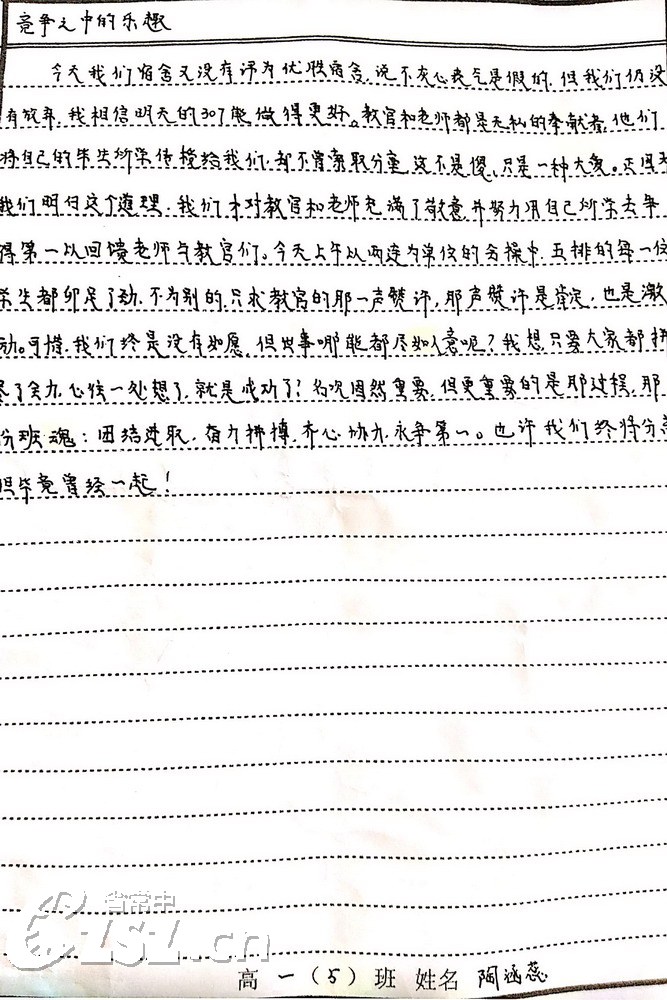 竞争之中的乐趣
今天我们宿舍又没有评为优胜宿舍,说不灰心丧气是假的,但我们仍没
有放弃,我相信明天的307能做得更好。教官和老师都是无私的奉献者,他们
将自己的毕生所学传授给我们,却不曾索取分毫,这不是傻,只是一种大爱。正因为
我们明白这个道理,我们才对教官和老师充满了敬意,并努力用自己所学去争
得第一以回馈老师与教官们。今天上午以两连为单位的会操中,五排的每一位
学生都卯足了劲,不为别的,只求教官的那一声赞许,那声赞许是肯定,也是激
动。可惜,我们终是没有如愿,但世事哪能都尽如人意呢?我想只要大家都拼
尽了全力,心往一处想了,就是成功了!名次固然重要,但更重要的是那过程,那
份班魂:团结进取,奋力拼搏,齐心协力,永争第一。也许我们终将分离
但毕竟曾经一起!
省常中
CZSZ.cn
高一(5)班 姓名 陶涵蕊